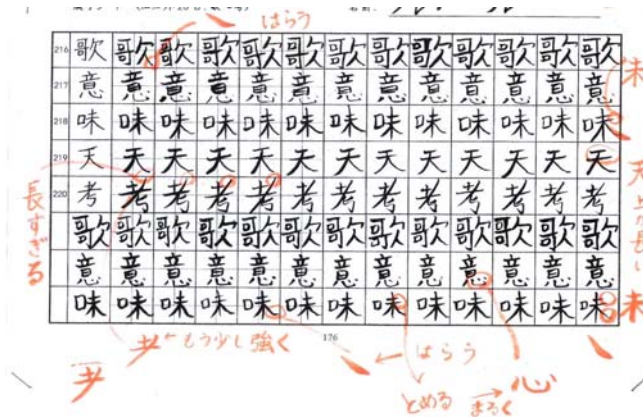 はらう
216 歌 歌 歌 歌 歌 歌 歌 歌 歌 歌 歌 歌 歌
217 意 意 意 意 意 意 意 意 意 意 意 意 意
218 味 味 味 味 味 味 味 味 味 味 味 味 味
219 天 天 天 天 天 天 天 天 天 天 天 天 天
220 考 考 考 考 考 考 考 考 考 考 考 考 考
歌 歌 歌 歌 歌 歌 歌 歌 歌 歌 歌 歌 歌
意 意 意 意 意 意 意 意 意 意 意 意 意
味 味 味 味 味 味 味 味 味 味 味 味 味
長すぎる
もう少し強く
176
はらう
とめる
まるく
心